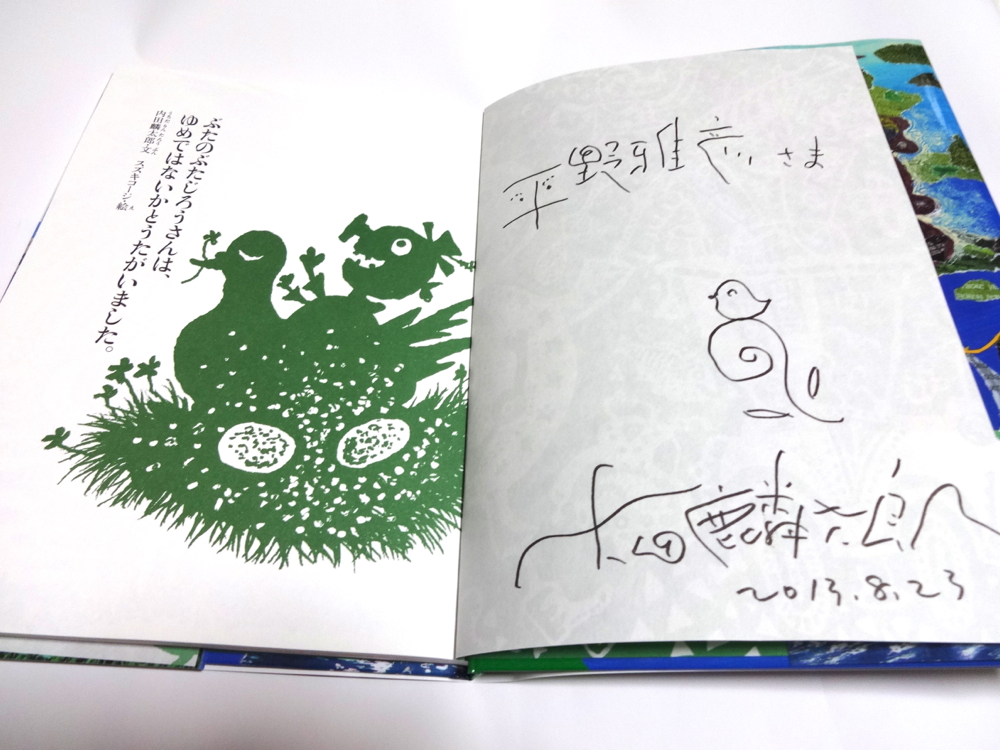 ぶたのぶたじろうさんは、
ゆめではないかとうたがいました。
内田麟太郎文 スズキコージ絵
平野雅彦さま
内田麟太郎
2013.8.23